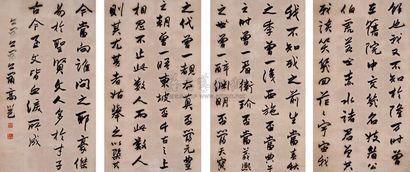 餘也我又不知在隆万時曾
至舊院中交幾名妓眉公
伯虎若士赤水諸君曾共
我談笑幾回茫茫宇宙我
我不知我之前生當春秋
之季曾一識西施否當典午
之時曾一看衛玠否當義熙
之世曾一醉淵明否當天寶
之代曾一覩太真否當元豐
之朝曾一晤東坡否千古之上
相思不止此數人而此數人
則其尤甚者姑舉之以概其
今當向誰問之耶豪傑
易於聖賢文人多於才子
古今至文皆血淚所成
高邕